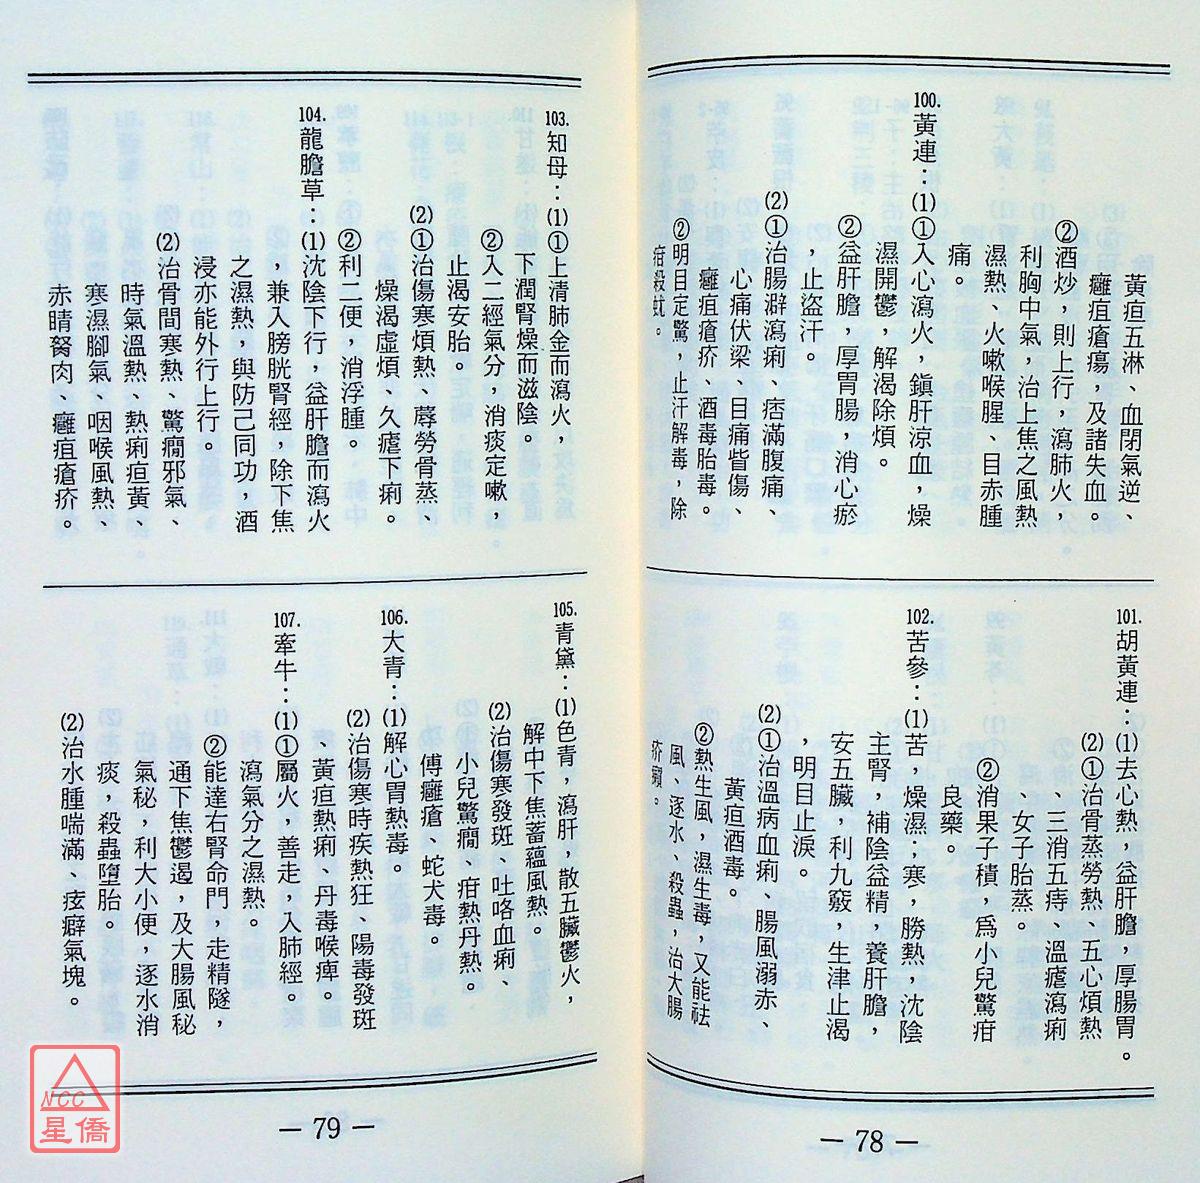 黃疸五淋、血閉氣逆、
癰疽瘡瘍，及諸失血。
②酒炒，則上行，瀉肺火，
利胸中氣，治上焦之風熱
濕熱、火嗽喉腥、目赤腫
痛。
100.黃連：⑴①入心瀉火，鎮肝涼血，燥
濕開鬱，解渴除煩。
②益肝膽，厚胃腸，消心瘀
，止盜汗。
⑵①治腸澼瀉痢、痞滿腹痛、
心痛伏梁、目痛眥傷、
癰疽瘡疥、酒毒胎毒。
②明目定驚，止汗解毒，除
疳殺蚘。
101.胡黃連：⑴去心熱，益肝膽，厚腸胃。
⑵①治骨蒸勞熱、五心煩熱
、三消五痔、溫瘧瀉痢
、女子胎蒸。
②消果子積，爲小兒驚疳
良藥。
102.苦參：⑴苦，燥濕；寒，勝熱，沈陰
主腎，補陰益精，養肝膽，
安五臟，利九竅，生津止渴
，明目止淚。
⑵①治溫病血痢、腸風溺赤、
黃疸酒毒。
②熱生風，濕生毒，又能祛
風、逐水、殺蟲，治大腸
疥癩。
— 78 —
103.知母：⑴①上清肺金而瀉火，
下潤腎燥而滋陰。
②入二經氣分，消痰定嗽，
止渴安胎。
⑵①治傷寒煩熱、蓐勞骨蒸、
燥渴虛煩、久瘧下痢。
②利二便，消浮腫。
104.龍膽草：⑴沈陰下行，益肝膽而瀉火
，兼入膀胱腎經，除下焦
之濕熱，與防己同功，酒
浸亦能外行上行。
⑵治骨間寒熱、驚癇邪氣、
時氣溫熱、熱痢疸黃、
寒濕腳氣、咽喉風熱、
赤睛胬肉、癰疽瘡疥。
105.青黛：⑴色青，瀉肝，散五臟鬱火，
解中下焦蓄蘊風熱。
⑵治傷寒發斑、吐咯血痢、
小兒驚癇、疳熱丹熱。
傅癰瘡、蛇犬毒。
106.大青：⑴解心胃熱毒。
⑵治傷寒時疾熱狂、陽毒發斑
、黃疸熱痢、丹毒喉痺。
107.牽牛：⑴①屬火，善走，入肺經。
瀉氣分之濕熱。
②能達右腎命門，走精隧，
通下焦鬱遏，及大腸風秘
氣秘，利大小便，逐水消
痰，殺蟲墮胎。
⑵治水腫喘滿、痃癖氣塊。
— 79 —
NCC
星僑